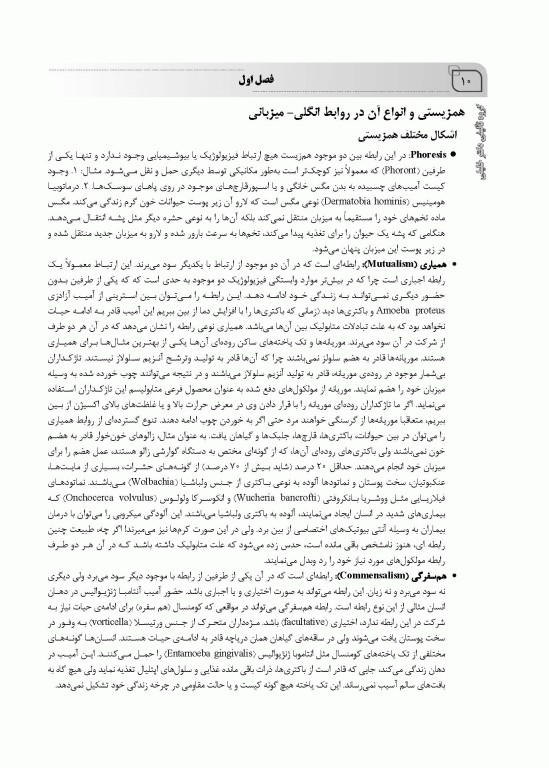 فصل اول
۱۰
همزیستی و انواع آن در روابط انگلی- میزبانی
اشکال مختلف همزیستی
● Phoresis: در این رابطه بین دو موجود هم‌زیست هیچ ارتباط فیزیولوژیک یا بیوشیمیایی وجود ندارد و تنها یکی از
طرفین (Phoront) که معمولاً نیز کوچک‌تر است به‌طور مکانیکی توسط دیگری حمل و نقل می‌شود. مثال: ۱. وجود
کیست آمیب‌های چسبیده به بدن مگس خانگی و یا اسپورقارچ‌های موجود در روی پاهای سوسک‌ها. ۲. درماتوبیا
هومینیس (Dermatobia hominis) نوعی مگس است که لارو آن زیر پوست حیوانات خون گرم زندگی می‌کند. مگس
ماده تخم‌های خود را مستقیماً به میزبان منتقل نمی‌کند بلکه آن‌ها را به نوعی حشره دیگر مثل پشه انتقال می‌دهد.
هنگامی که پشه یک حیوان را برای تغذیه پیدا می‌کند، تخم‌ها به سرعت بارور شده و لارو به میزبان جدید منتقل شده و
در زیر پوست این میزبان پنهان می‌شود.
● همیاری (Mutualism): رابطه‌ای است که در آن دو موجود از ارتباط با یکدیگر سود می‌برند. این ارتباط معمولاً یک
رابطه اجباری است چرا که در بیش‌تر موارد وابستگی فیزیولوژیک دو موجود به حدی است که که یکی از طرفین بدون
حضور دیگری نمی‌تواند به زندگی خود ادامه دهد. این رابطه را می‌توان بین استرینی از آمیب آزادزی
Amoeba proteus و باکتری‌ها دید (زمانی که باکتری‌ها را با افزایش دما از بین ببریم این آمیب قادر به ادامه حیات
نخواهد بود که به علت تبادلات متابولیک بین آن‌ها می‌باشد. همیاری نوعی رابطه را نشان می‌دهد که در آن هر دو طرف
از شرکت در آن سود می‌برند. موریانه‌ها و تک یاخته‌های ساکن روده‌ای آن‌ها یکی از بهترین مثال‌ها برای همیاری
هستند. موریانه‌ها قادر به هضم سلولز نمی‌باشند چرا که آن‌ها قادر به تولید وترشح آنزیم سلولاز نیستند. تاژکداران
بی‌شمار موجود در روده‌ی موریانه، قادر به تولید آنزیم سلولاز می‌باشند و در نتیجه می‌توانند چوب خورده شده به وسیله
میزبان خود را هضم نمایند. موریانه از مولکول‌های دفع شده به عنوان محصول فرعی متابولیسم این تاژکداران استفاده
می‌نماید. اگر ما تاژکداران روده‌ای موریانه را با قرار دادن وی در معرض حرارت بالا و یا غلظت‌های بالای اکسیژن از بین
ببریم، متعاقبا موریانه‌ها از گرسنگی خواهند مرد حتی اگر به خوردن چوب ادامه دهند. تنوع گسترده‌ای از روابط همیاری
را می‌توان در بین حیوانات، باکتری‌ها، قارچ‌ها، جلبک‌ها و گیاهان یافت. به عنوان مثال، زالوهای خون‌خوار قادر به هضم
خون نمی‌باشند ولی باکتری‌های روده‌ای آن‌ها، که از گونه‌ای مختص به دستگاه گوارشی زالو هستند، عمل هضم را برای
میزبان خود انجام می‌دهند. حداقل ۲۰ درصد (شاید بیش از ۷۰ درصد) از گونه‌های حشرات، بسیاری از مایت‌ها،
عنکبوتیان، سخت پوستان و نماتودها آلوده به نوعی باکتری از جنس ولباشیا (Wolbachia) می‌باشند. نماتودهای
فیلاریایی مثل ووشریا بانکروفتی (Wucheria bancrofti) و انکوسرکا ولولوس (Onchocerca volvulus) که
بیماری‌های شدید در انسان ایجاد می‌نمایند، آلوده به باکتری ولباشیا می‌باشند. این آلودگی میکروبی را می‌توان با درمان
بیماران به وسیله آنتی بیوتیک‌های اختصاصی از بین برد. ولی در این صورت کرم‌ها نیز می‌میرند! اگر چه، طبیعت چنین
رابطه ای، هنوز نامشخص باقی مانده است، حدس زده می‌شود که علت متابولیک داشته باشد که در آن هر دو طرف
رابطه مولکول‌های مورد نیاز خود را رد وبدل می‌نمایند.
● هم‌سفرگی (Commensalism): رابطه‌ای است که در آن یکی از طرفین از رابطه با موجود دیگر سود می‌برد ولی دیگری
نه سود می‌برد و نه زیان. این رابطه می‌تواند به صورت اختیاری و یا اجباری باشد. حضور آمیب آنتامبا ژنژیوالیس در دهان
انسان مثالی از این نوع رابطه است. رابطه هم‌سفرگی می‌تواند در مواقعی که کومنسال (هم سفره) برای ادامه‌ی حیات نیاز به
شرکت در این رابطه ندارد، اختیاری (facultative) باشد. مژه‌داران متحرک از جنس ورتیسلا (vorticella) به وفور در
سخت پوستان یافت می‌شوند ولی در ساقه‌های گیاهان همان دریاچه قادر به ادامه‌ی حیات هستند. انسان‌ها گونه‌های
مختلفی از تک یاخته‌های کومنسال مثل انتاموبا ژنژیوالیس (Entamoeba gingivalis) را حمل می‌کنند. این آمیب در
دهان زندگی می‌کند، جایی که قادر است از باکتری‌ها، ذرات باقی مانده غذایی و سلول‌های اپتلیال تغذیه نماید ولی هیچ گاه به
بافت‌های سالم آسیب نمی‌رساند. این تک یاخته هیچ گونه کیست و یا حالت مقاومی در چرخه زندگی خود تشکیل نمی‌دهد.